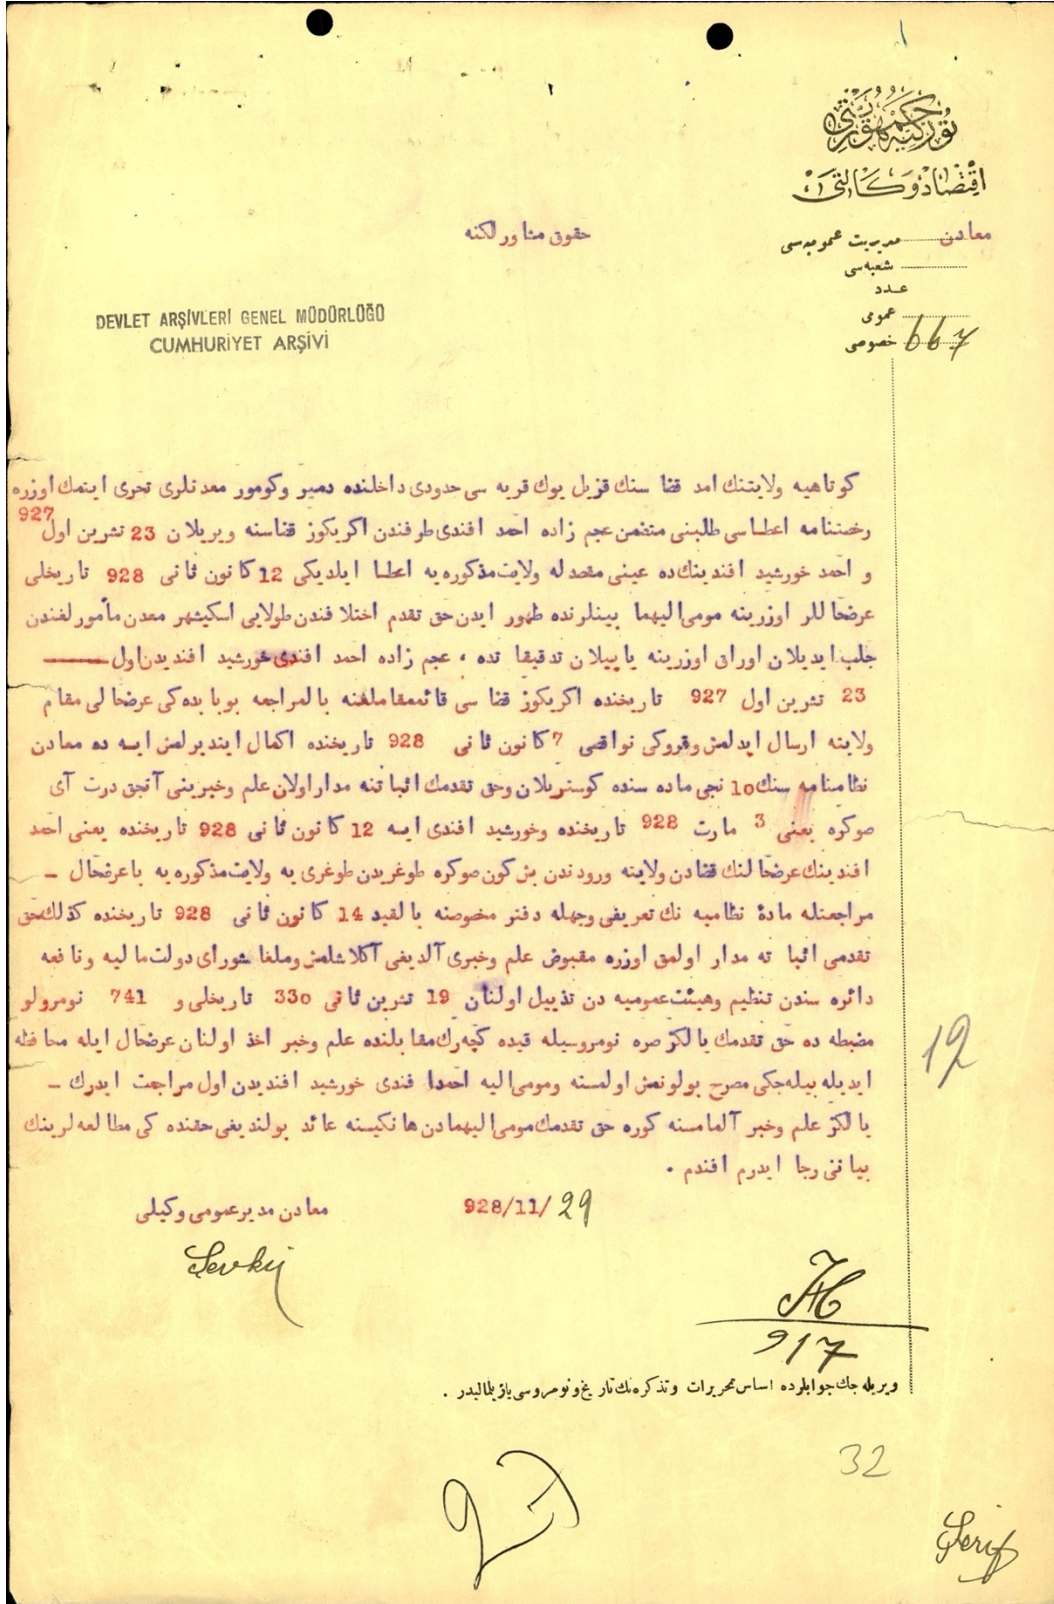 توركیه جمهوریتی
اقتصاد وكالتی
معادن مدیریت عمومیه‌سی
شعبه‌سی
عدد
عمومی
خصوصی 667
حقوق مشاورلكنه
DEVLET ARŞİVLERİ GENEL MÜDÜRLÜĞÜ
CUMHURİYET ARŞİVİ
كوتاهیه ولایتنك امد قضا سنك قزیل بوك قریه سی حدودی داخلنده دمیر وكومور معدنلری تحری ایتمك اوزره
رخصتنامه اعطاسی طلبنی متضمن عجم زاده احمد افندی طرفندن اكریكوز قضاسنه ویریلان 23 تشرین اول 927
و احمد خورشید افندینك ده عینی مقصد له ولایت مذكوره یه اعطا ایلدیكی 12 كانون ثانی 928 تاریخلی
عرضحاللر اوزرینه مومی الیهما بینلرنده ظهور ایدن حق تقدم اختلافندن طولایی اسكیشهر معدن مأمورلغندن
جلب ایدیلان اوراق اوزرینه یاپیلان تدقیقا تده ، عجم زاده احمد افندی خورشید افندیدن اول
23 تشرین اول 927 تاریخنده اكریكوز قضا سی قائممقاملغنه بالمراجعه بوبابده كی عرضحالی مقام
ولایته ارسال ایدلمش وقروكی نواقصی 7 كانون ثانی 928 تاریخنده اكمال ایندیرلمش ایسه ده معادن
نظامنامه سنك 10 نجی ماده سنده كوستریلان وحق تقدمك اثباتنه مدار اولان علم وخبرینی آنجق درت آی
صوكره یعنی 3 مارت 928 تاریخنده وخورشید افندی ایسه 12 كانون ثانی 928 تاریخنده یعنی احمد
افندینك عرضحالنك قضادن ولایته ورودندن بش كون صوكره طوغریدن طوغری یه ولایت مذكوره یه باعرضحال –
مراجعتله مادهٔ نظامیه نك تعریفی وجهله دفتر مخصوصنه بالقید 14 كانون ثانی 928 تاریخنده كذلك حق
تقدمی اثبا ته مدار اولمق اوزره مقبوض علم وخبری آلدیغی آكلاشلمش وملغا شورای دولت مالیه ونافعه
دائره سندن تنظیم وهیئت عمومیه دن تذییل اولنان 19 تشرین ثانی 330 تاریخلی و 741 نومرولو
مضبطه ده حق تقدمك یالكز صره نومروسیله قیده كچه رك مقابلنده علم وخبر اخذ اولنان عرضحال ایله محافظه
ایدیله بیله جكی مصرح بولونمش اولمسنه ومومی الیه احمدا فندی خورشید افندیدن اول مراجعت ایدرك –
یالكز علم وخبر آلمامسنه كوره حق تقدمك مومی الیهمادن هانكیسنه عائد بولندیغی حقنده كی مطالعه لرینك
بیاننی رجا ایدرم افندم .
928/11/29
معادن مدیر عمومی وكیلی
Şevki
12
917
ویریله جك جوابلرده اساس تحریرات وتذكره نك تاریخ ونومروسی یازیلمالیدر .
32
Şerif